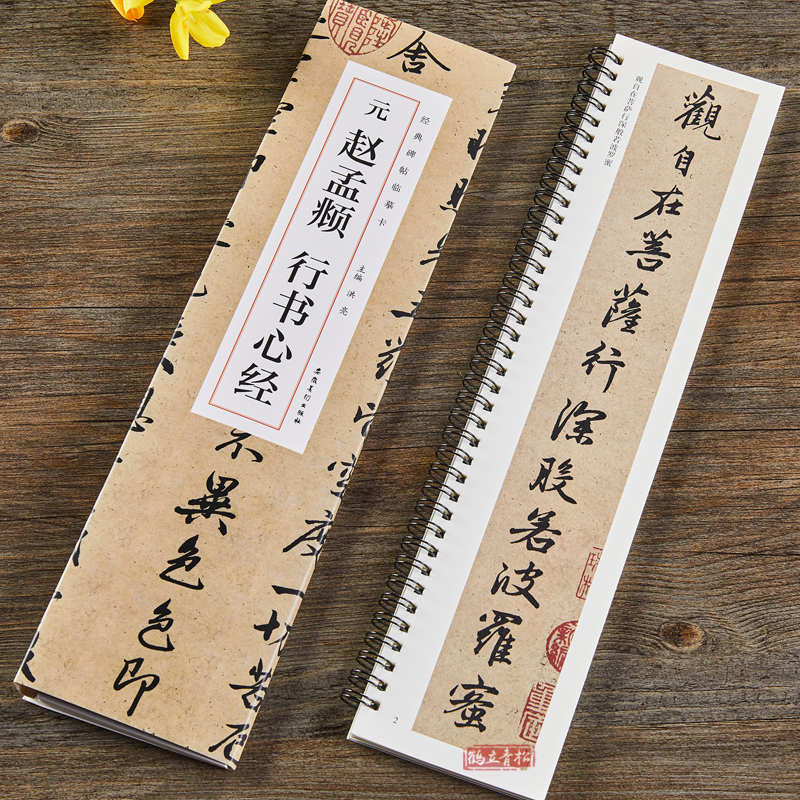 经典碑帖临摹卡
元 赵孟頫 行书心经
主编 洪亮
安徽美术出版社
舍
不異色色即
空度一切苦厄
观自在菩萨行深般若波罗蜜
觀自在菩薩行深般若波羅蜜
2
鹤立青松